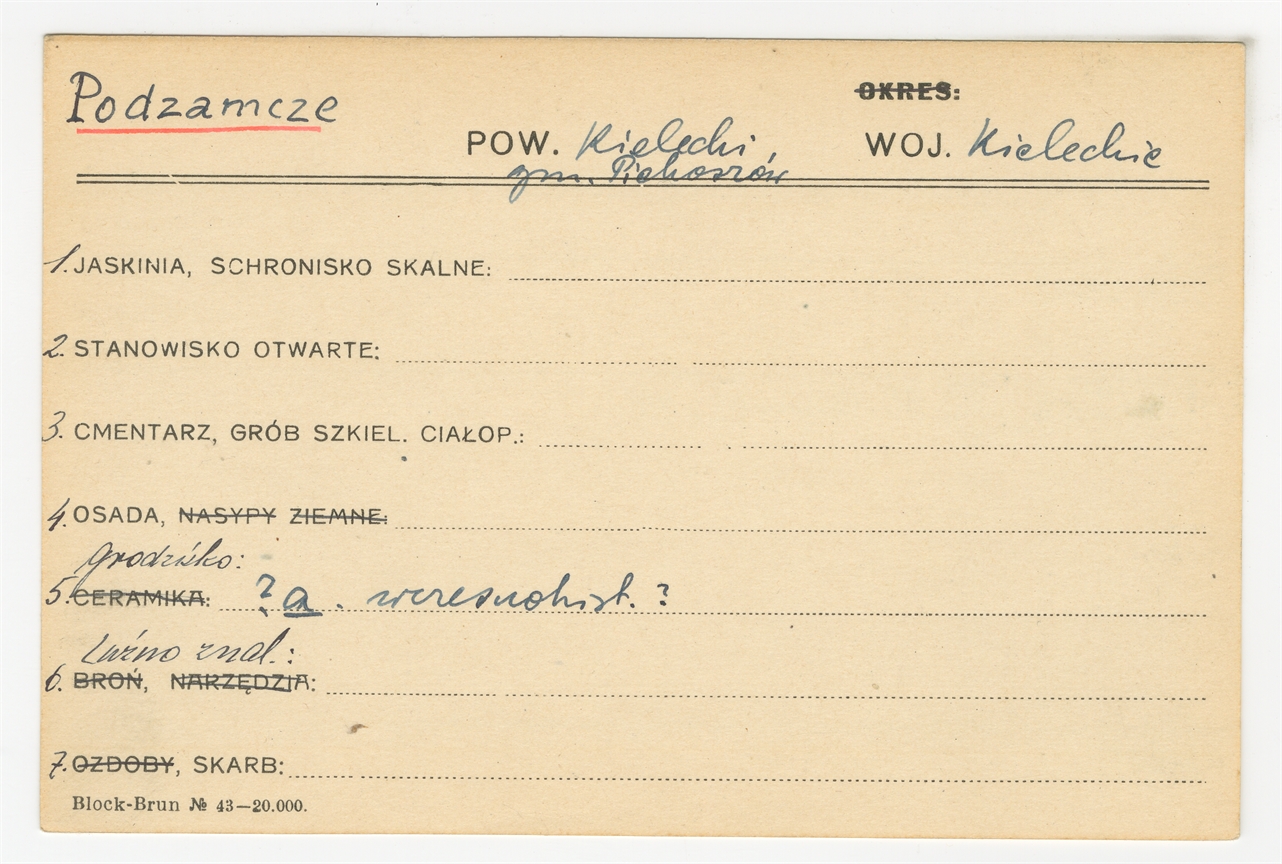 Podzamcze
OKRES:
POW. Kielecki, WOJ. Kieleckie
gm. Piekoszów
1. JASKINIA, SCHRONISKO SKALNE:
2. STANOWISKO OTWARTE:
3. CMENTARZ, GRÓB SZKIEL. CIAŁOP.:
4. OSADA, NASYPY ZIEMNE:
Grodzisko:
5. CERAMIKA: ? a. wczesnohist. ?
Luźno znal.:
6. BROŃ, NARZĘDZIA:
7. OZDOBY, SKARB:
Block-Brun № 43—20.000.